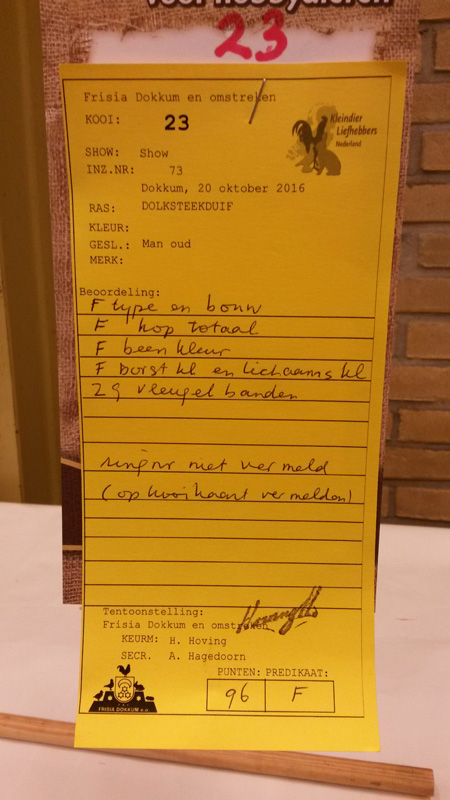 voor hobbydieren
23
Frisia Dokkum en omstreken
KOOI: 23
Kleindier
Liefhebbers
Nederland
SHOW: Show
INZ.NR: 73
Dokkum, 20 oktober 2016
RAS: DOLKSTEEKDUIF
KLEUR:
GESL.: Man oud
MERK:
Beoordeling:
F type en bouw
F kop totaal
F been kleur
F borst kl en lichaams kl
ZG vleugel banden
ringnr niet vermeld
(op kooikaart vermelden)
Tentoonstelling:
Frisia Dokkum en omstreken
KEURM: H. Hoving
SECR. A. Hagedoorn
PUNTEN: PREDIKAAT:
96 F
FRISIA DOKKUM e.o.